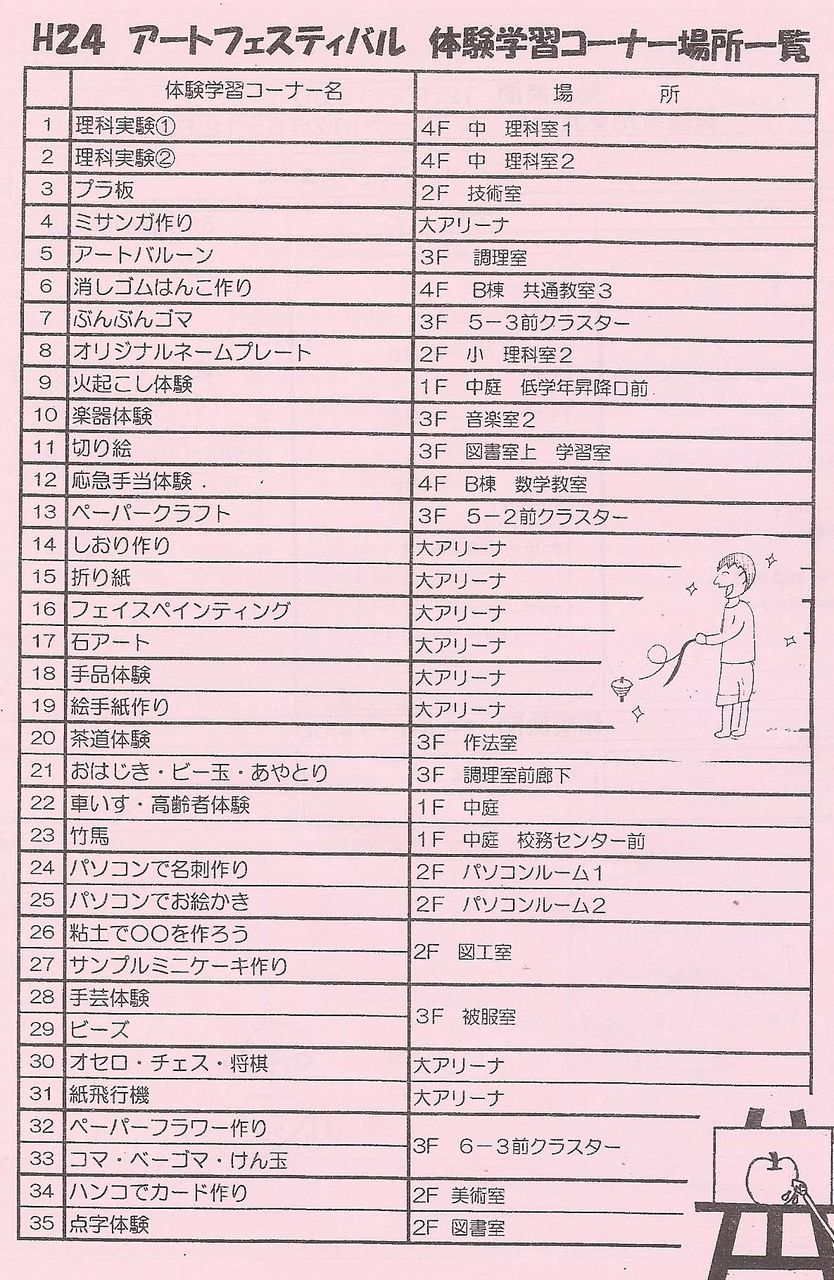 H24 アートフェスティバル 体験学習コーナー場所一覧
体験学習コーナー名 場 所
1 理科実験① 4F 中 理科室1
2 理科実験② 4F 中 理科室2
3 プラ板 2F 技術室
4 ミサンガ作り 大アリーナ
5 アートバルーン 3F 調理室
6 消しゴムはんこ作り 4F B棟 共通教室3
7 ぶんぶんゴマ 3F 5-3前クラスター
8 オリジナルネームプレート 2F 小 理科室2
9 火起こし体験 1F 中庭 低学年昇降口前
10 楽器体験 3F 音楽室2
11 切り絵 3F 図書室上 学習室
12 応急手当体験 4F B棟 数学教室
13 ペーパークラフト 3F 5-2前クラスター
14 しおり作り 大アリーナ
15 折り紙 大アリーナ
16 フェイスペインティング 大アリーナ
17 石アート 大アリーナ
18 手品体験 大アリーナ
19 絵手紙作り 大アリーナ
20 茶道体験 3F 作法室
21 おはじき・ビー玉・あやとり 3F 調理室前廊下
22 車いす・高齢者体験 1F 中庭
23 竹馬 1F 中庭 校務センター前
24 パソコンで名刺作り 2F パソコンルーム1
25 パソコンでお絵かき 2F パソコンルーム2
26 粘土で〇〇を作ろう 2F 図工室
27 サンプルミニケーキ作り
28 手芸体験 3F 被服室
29 ビーズ
30 オセロ・チェス・将棋 大アリーナ
31 紙飛行機 大アリーナ
32 ペーパーフラワー作り 3F 6-3前クラスター
33 コマ・ベーゴマ・けん玉
34 ハンコでカード作り 2F 美術室
35 点字体験 2F 図書室